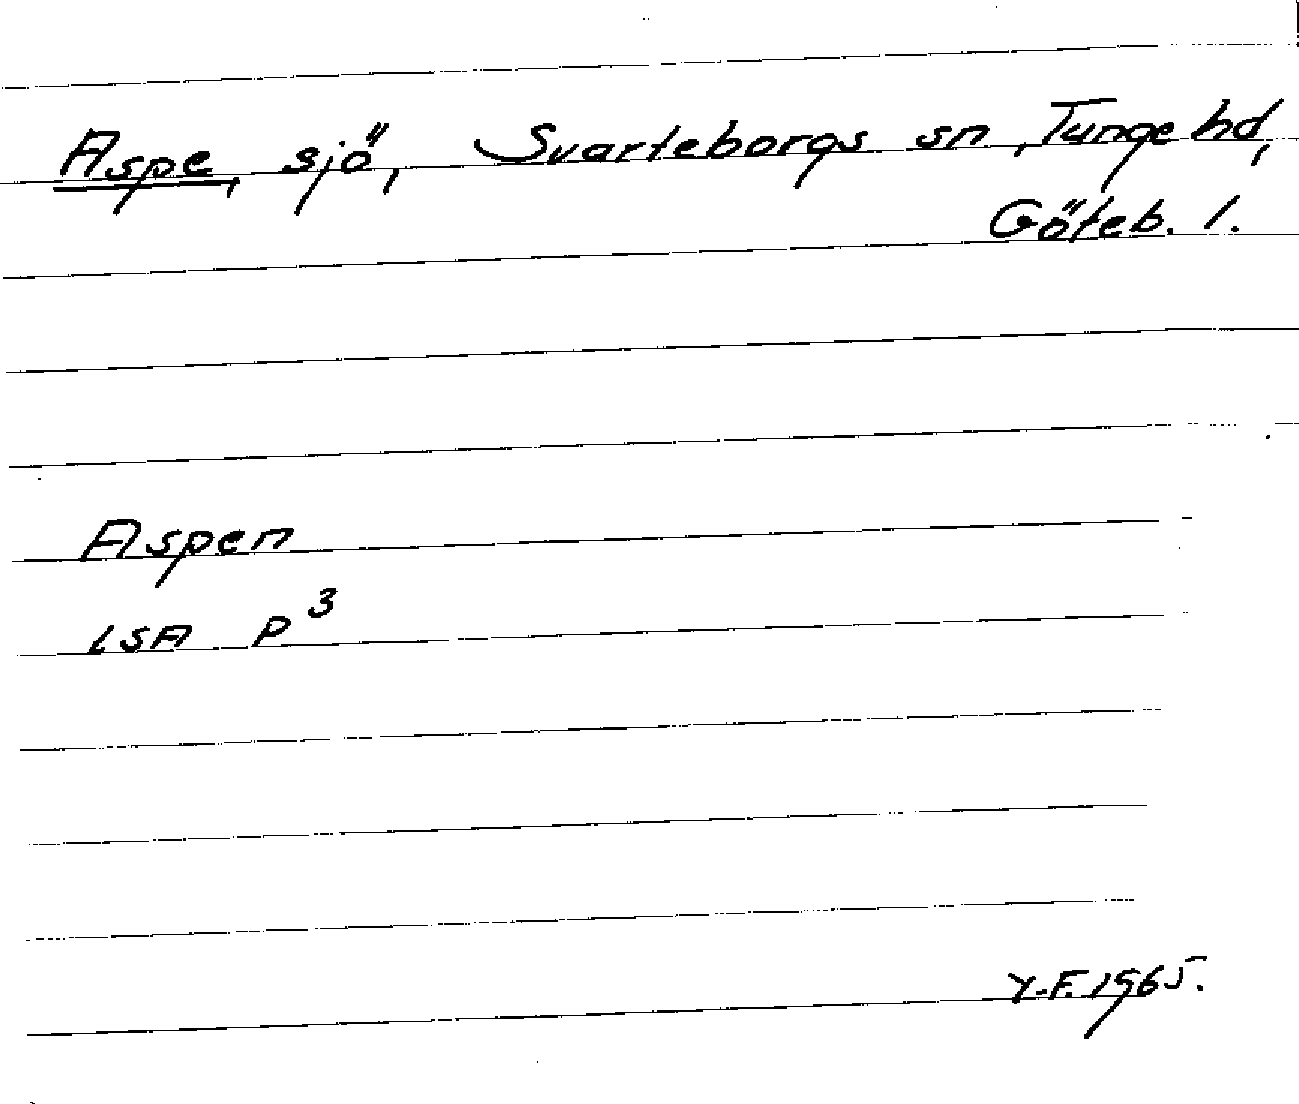 Aspe, sjö, Svarteborgs sn, Tunge hd,
Göteb. l.
Aspen
LSA P³
Y-F. 1965.